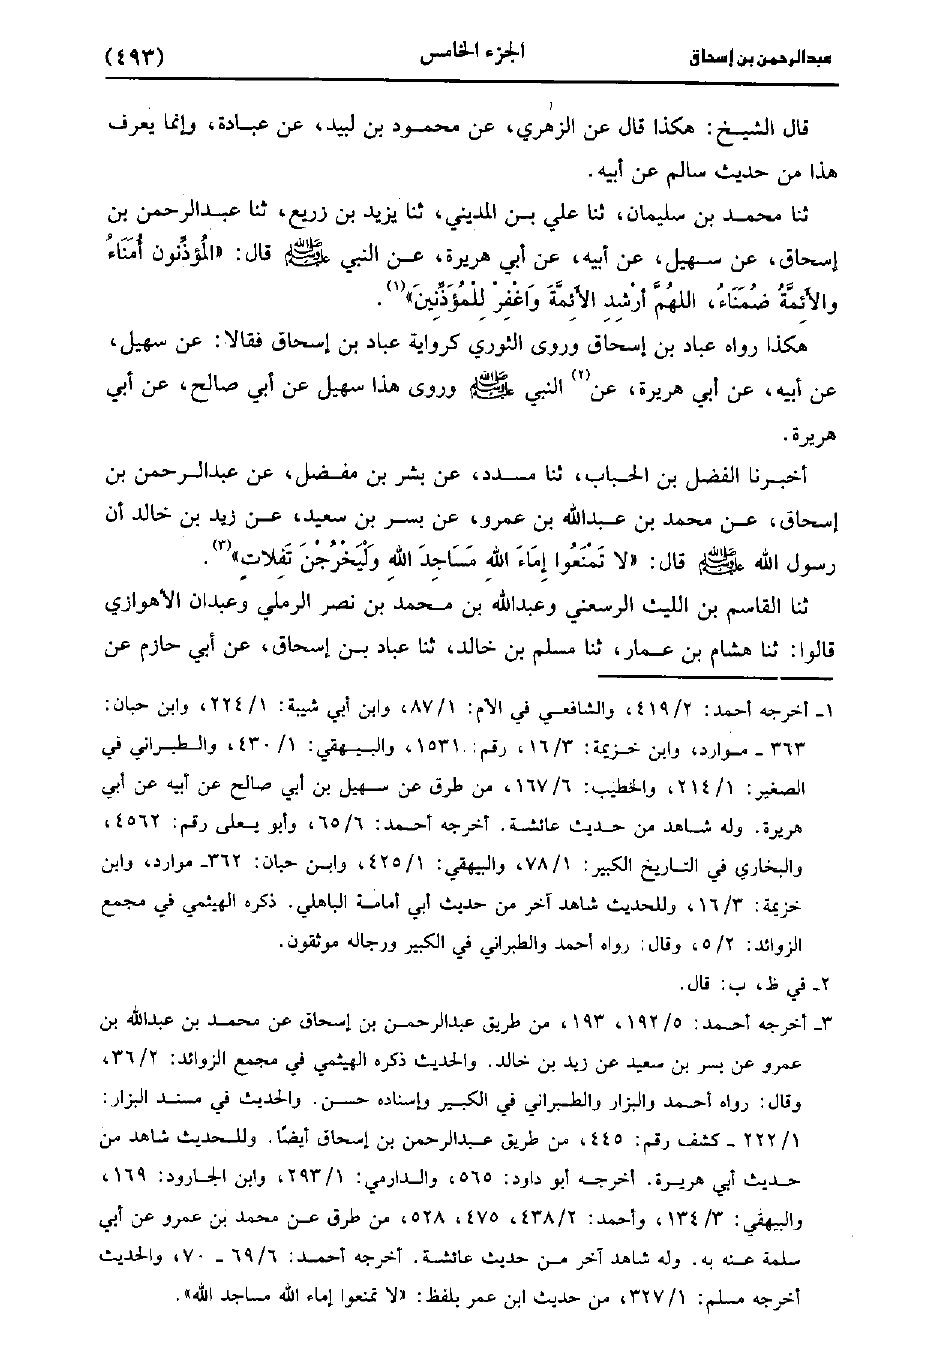 عبدالرحمن بن إسحاق الجزء الخامس (٤٩٣)
قال الشيخ: هكذا قال عن الزهري، عن محمود بن لبيد، عن عبادة، وإنما يعرف
هذا من حديث سالم عن أبيه.
ثنا محمد بن سليمان، ثنا علي بن المديني، ثنا يزيد بن زريع، ثنا عبدالرحمن بن
إسحاق، عن سهيل، عن أبيه، عن أبي هريرة، عن النبي ﷺ قال: «المُؤذِّنون أُمَنَاءُ
والأئمَّةُ ضُمَنَاءُ، اللهُمَّ أرْشِدِ الأئمَّةَ وَاغْفِرْ لِلمُؤَذِّنِينَ»(١).
هكذا رواه عباد بن إسحاق وروى الثوري كرواية عباد بن إسحاق فقالا: عن سهيل،
عن أبيه، عن أبي هريرة، عن(٢) النبي ﷺ وروى هذا سهيل عن أبي صالح، عن أبي
هريرة.
أخبرنا الفضل بن الحباب، ثنا مسدد، عن بشر بن مفضل، عن عبدالرحمن بن
إسحاق، عن محمد بن عبدالله بن عمرو، عن بسر بن سعيد، عن زيد بن خالد أن
رسول الله ﷺ قال: «لا تَمْنَعُوا إِمَاءَ اللهِ مَسَاجِدَ اللهِ وَلْيَخْرُجْنَ تَفِلاتٍ»(٣).
ثنا القاسم بن الليث الرسعني وعبدالله بن محمد بن نصر الرملي وعبدان الأهوازي
قالوا: ثنا هشام بن عمار، ثنا مسلم بن خالد، ثنا عباد بن إسحاق، عن أبي حازم عن
١ـ أخرجه أحمد: ٤١٩/٢، والشافعي في الأم: ٨٧/١، وابن أبي شيبة: ٢٢٤/١، وابن حبان:
٣٦٣ ـ موارد، وابن خزيمة: ١٦/٣، رقم: ١٥٣١، والبيهقي: ٤٣٠/١، والطبراني في
الصغير: ٢١٤/١، والخطيب: ١٦٧/٦، من طرق عن سهيل بن أبي صالح عن أبيه عن أبي
هريرة. وله شاهد من حديث عائشة. أخرجه أحمد: ٦٥/٦، وأبو يعلى رقم: ٤٥٦٢،
والبخاري في التاريخ الكبير: ٧٨/١، والبيهقي: ٤٢٥/١، وابن حبان: ٣٦٢ـ موارد، وابن
خزيمة: ١٦/٣، وللحديث شاهد آخر من حديث أبي أمامة الباهلي. ذكره الهيثمي في مجمع
الزوائد: ٥/٢، وقال: رواه أحمد والطبراني في الكبير ورجاله موثقون.
٢ـ في ظ، ب: قال.
٣ـ أخرجه أحمد: ١٩٢/٥، ١٩٣، من طريق عبدالرحمن بن إسحاق عن محمد بن عبدالله بن
عمرو عن بسر بن سعيد عن زيد بن خالد. والحديث ذكره الهيثمي في مجمع الزوائد: ٣٦/٢،
وقال: رواه أحمد والبزار والطبراني في الكبير وإسناده حسن. والحديث في مسند البزار:
٢٢٢/١ ـ كشف رقم: ٤٤٥، من طريق عبدالرحمن بن إسحاق أيضًا. وللحديث شاهد من
حديث أبي هريرة. أخرجه أبو داود: ٥٦٥، والدارمي: ٢٩٣/١، وابن الجارود: ١٦٩،
والبيهقي: ١٣٤/٣، وأحمد: ٤٣٨/٢، ٤٧٥، ٥٢٨، من طرق عن محمد بن عمرو عن أبي
سلمة عنه به. وله شاهد آخر من حديث عائشة. أخرجه أحمد: ٦٩/٦ ـ ٧٠، والحديث
أخرجه مسلم: ٣٢٧/١، من حديث ابن عمر بلفظ: «لا تمنعوا إماء الله مساجد الله».